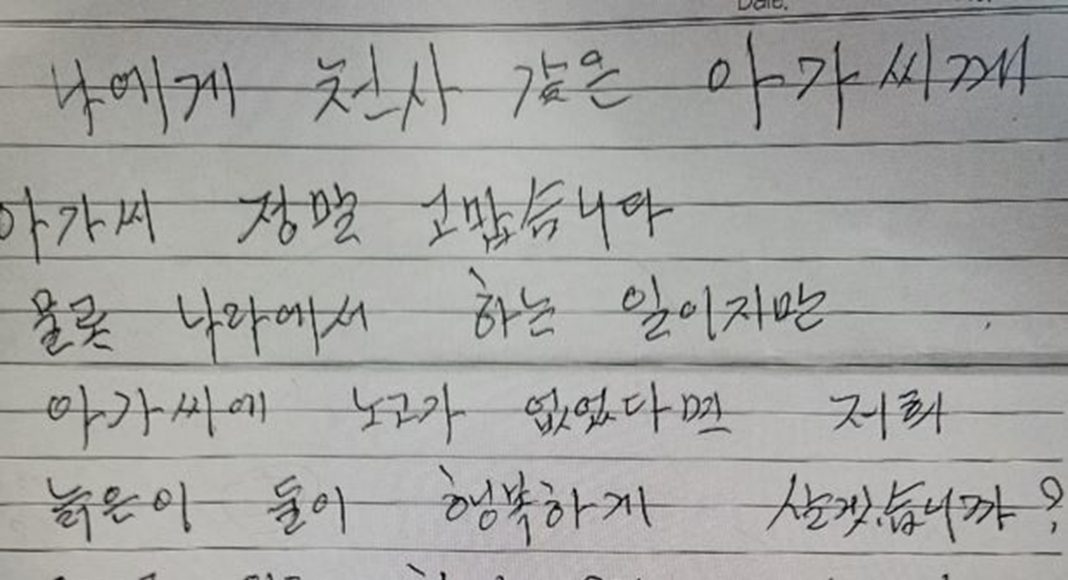 Date.
나에게 천사 같은 아가씨께
아가씨 정말 고맙습니다
물롯 나라에서 하는 일이지만
아가씨에 노고가 없었다면 저희
늙은이 둘이 행복하게 살겠습니까?